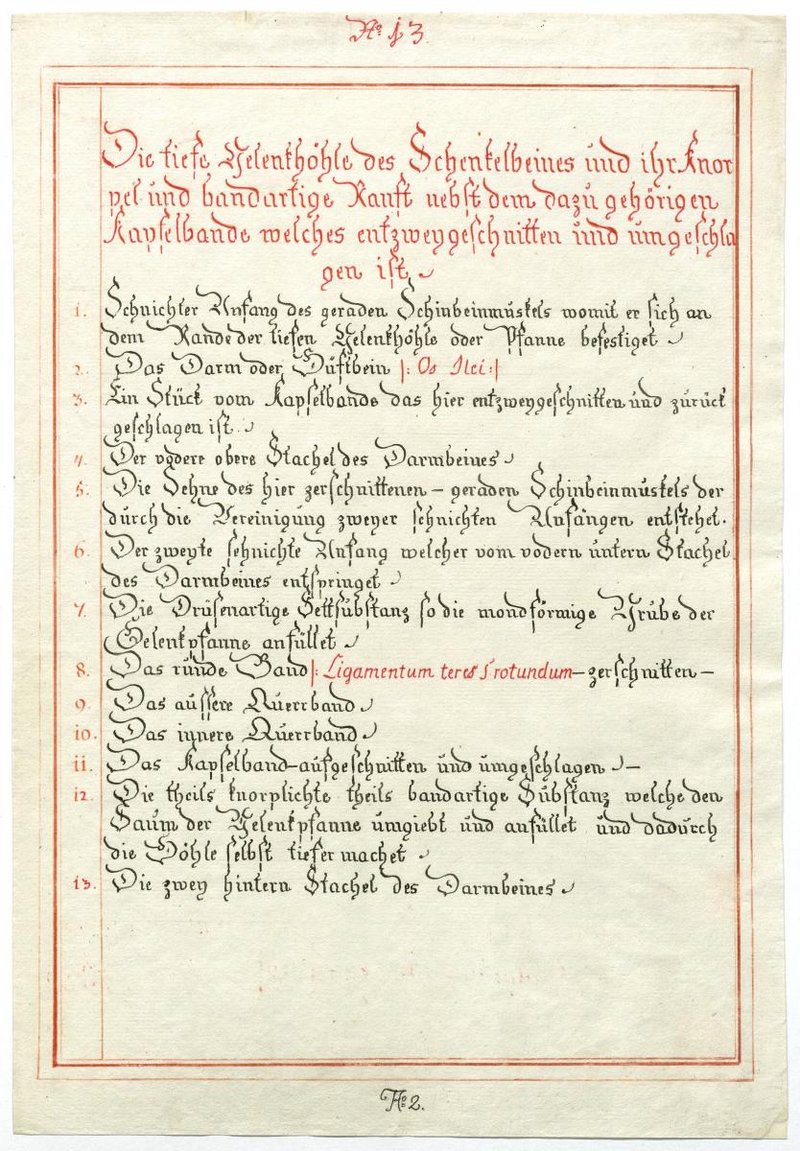 No 13
Die tiefe Gelenkhöhle des Schenkelbeines und ihr Knor
pel und bandartige Ranft nebst dem dazu gehörigen
Kapselbande welches entzweygeschnitten und umgeschla
gen ist.
1. Sehnichter Anfang des geraden Schinbeinmuskels womit er sich an
dem Rande der tiefen Gelenkhöhle oder Pfanne befestiget
2. Das Darm oder Hüftbein |: Os Ilei :|
3. Ein Stück vom Kapselbande das hier entzweygeschnitten und zurück
geschlagen ist.
4. Der vodere obere Stachel des Darmbeines
5. Die Sehne des hier zerschnittenen – geraden Schinbeinmuskels der
durch die Vereinigung zweyer sehnichten Anfängen entstehet.
6. Der zweyte sehnichte Anfang welcher vom vodern untern Stachel
des Darmbeines entspringet
7. Die Drüsenartige Fettsubstanz so die mondförmige Grube der
Gelenkpfanne anfüllet
8. Das runde Band |: Ligamentum teres s rotundum – zerschnitten –
9. Das aüssere Querrband
10. Das innere Querrband
11. Das Kapselband – aufgeschnitten und umgeschlagen –
12. Die theils knorplichte theils bandartige Substanz welche den
Saum der Gelenkpfanne umgiebt und anfüllet und dadurch
die Höhle selbst tiefer machet
13. Die zwey hintern Stachel des Darmbeines
No 2.